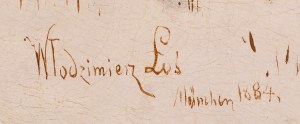 Włodzimierz Łoś
München 1884.